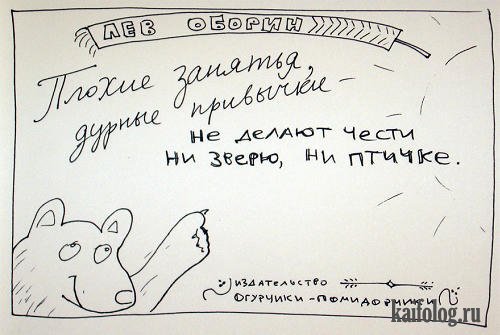 ЛЕВ ОБОРИН
Плохие занятья,
дурные привычки –
не делают чести
ни зверю, ни птичке.
издательство
огурчики-помидорчики
kaifolog.ru